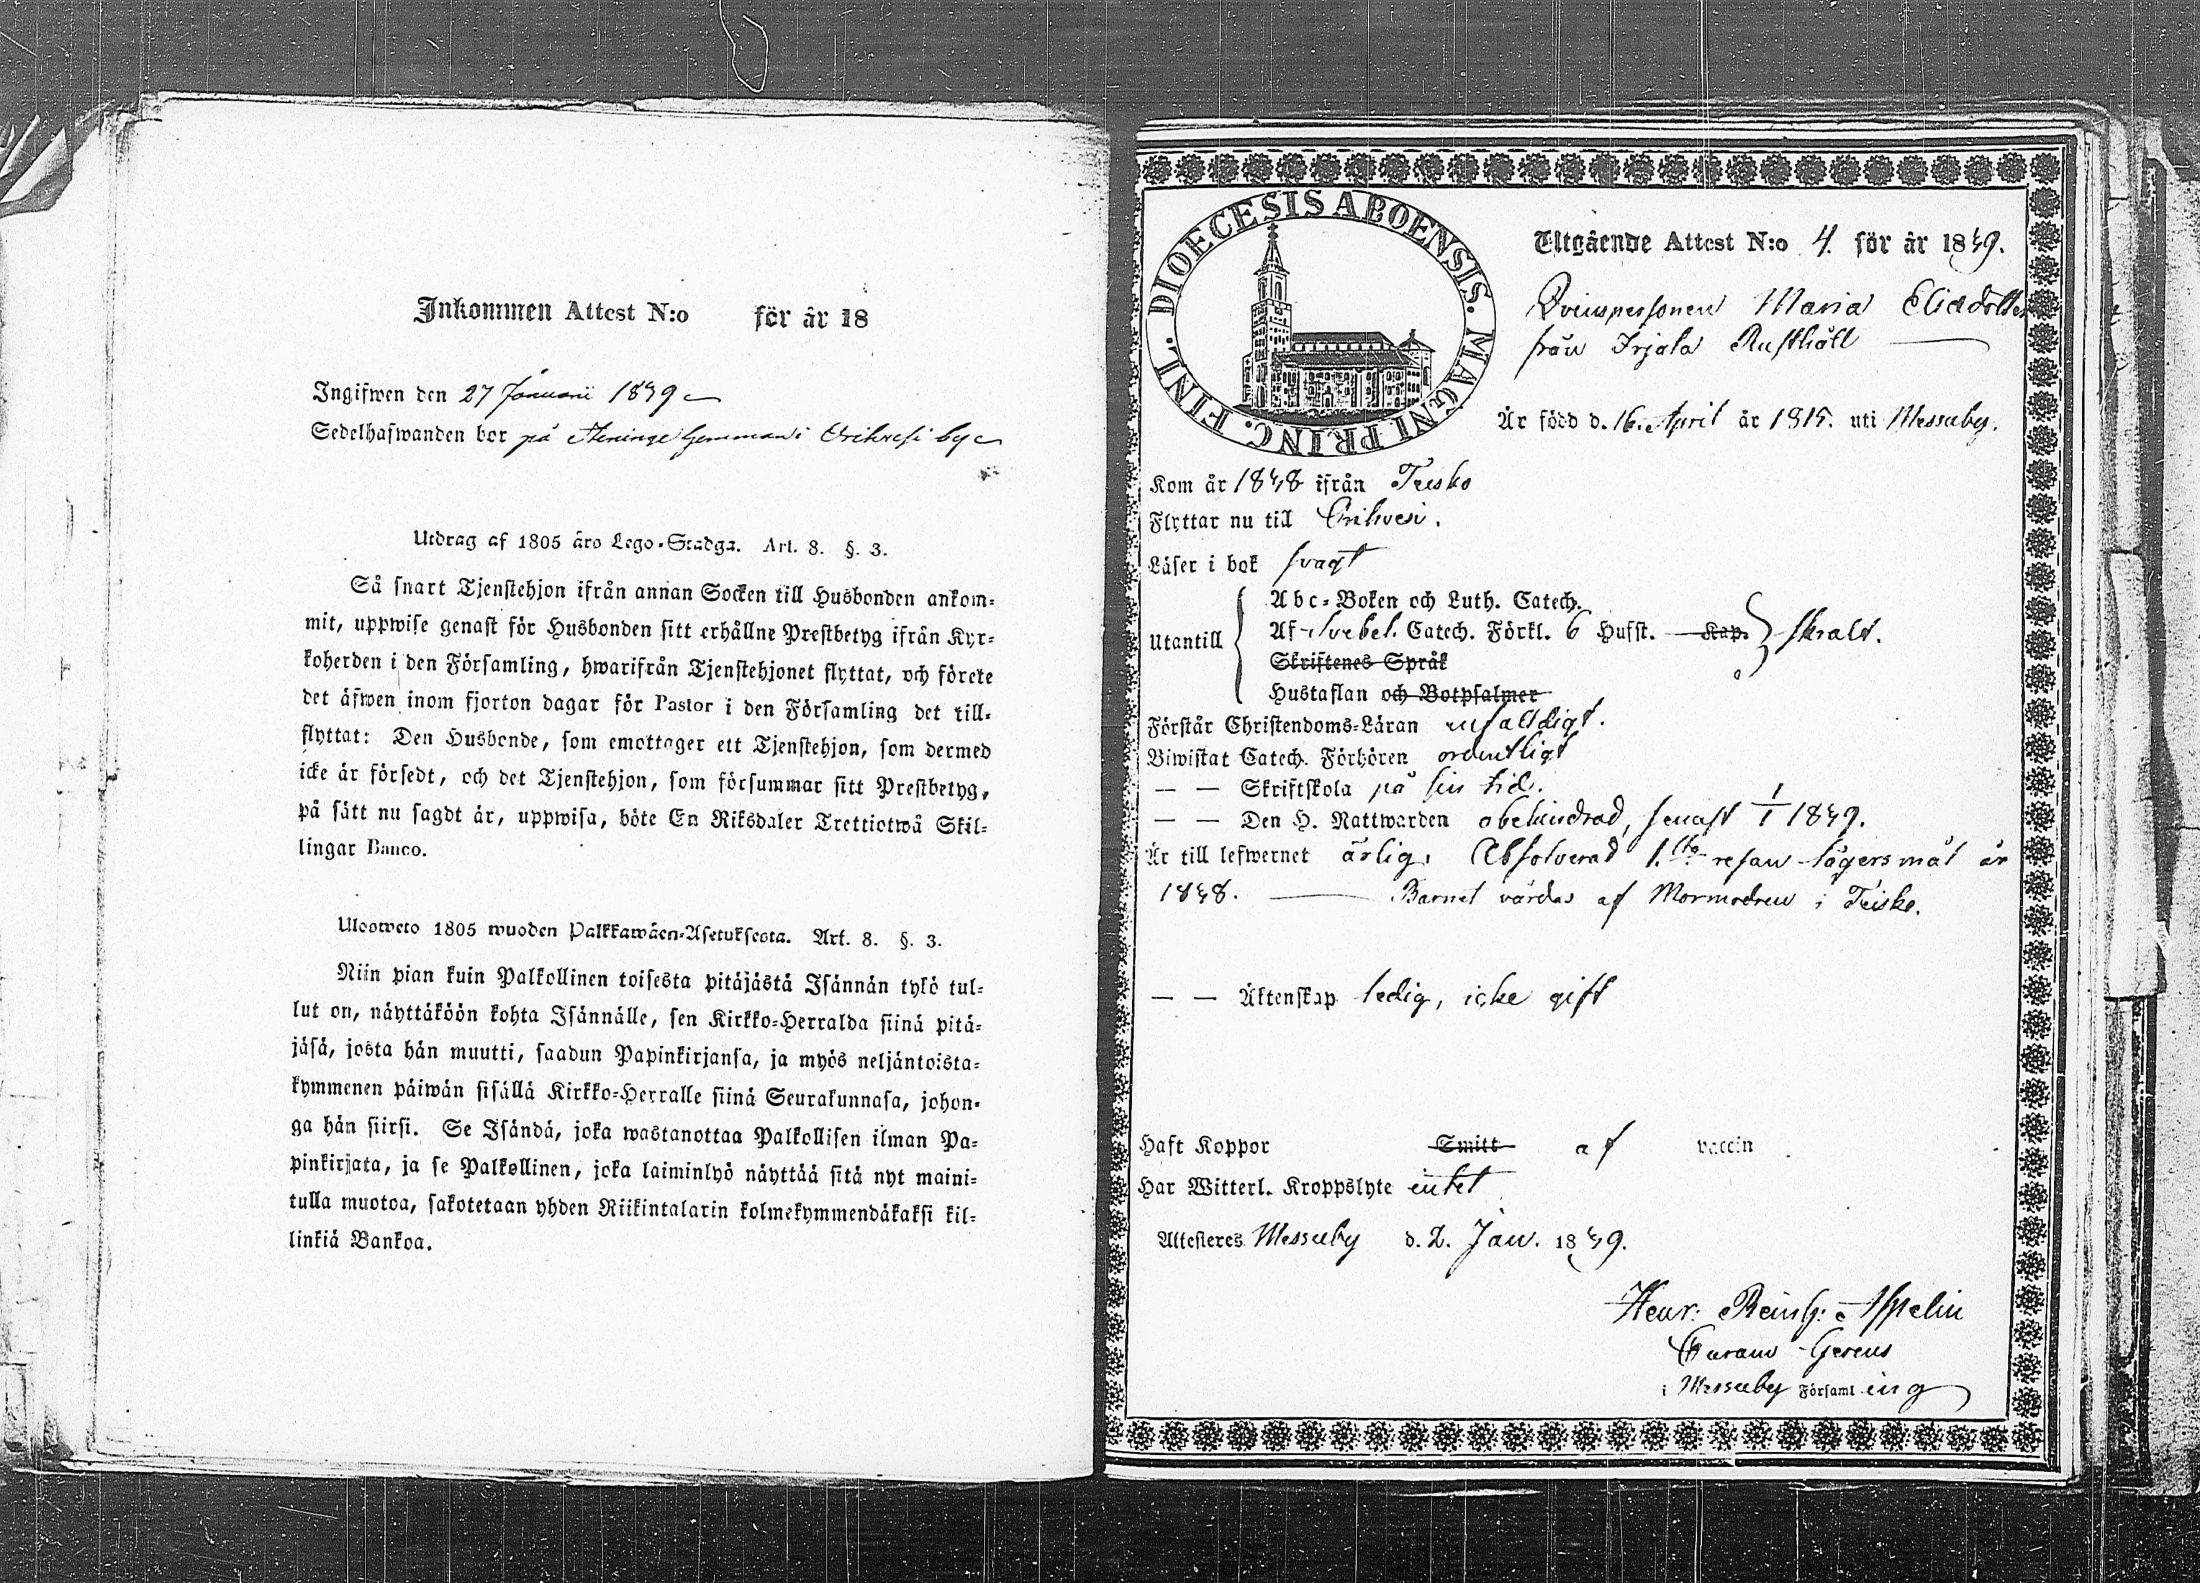 Inkommen Attest N:o för år 18
Ingifwen den 27 Januarii 1849
Sedelhafwanden bor på Hemman i Orihvesi by
Utdrag af 1805 års Lego-Stadga. Art. 8. §. 3.
Så snart Tjenstehjon ifrån annan Socken till Husbonden ankom-
mit, uppwise genast för Husbonden sitt erhållne Prestbetyg ifrån Kyr-
koherden i den Församling, hwarifrån Tjenstehjonet flyttat, och förete
det äfwen inom fjorton dagar för Pastor i den Församling det till-
flyttat: Den Husbonde, som emottager ett Tjenstehjon, som dermed
icke är försedt, och det Tjenstehjon, som försummar sitt Prestbetyg,
på sätt nu sagdt är, uppwisa, böte En Riksdaler Trettiotwå Skil-
lingar Banco.
Ulosweto 1805 wuoden Palkkawäen-Asetuksesta. Art. 8. §. 3.
Niin pian kuin Palkollinen toisesta pitäjästä Isännän tykö tul-
lut on, näyttäköön kohta Isännälle, sen Kirkko-Herralda siinä pitä-
jäsä, josta hän muutti, saadun Papinkirjansa, ja myös neljäntoista-
kymmenen päiwän sisällä Kirkko-Herralle siinä Seurakunnasa, johon-
ga hän siirsi. Se Isändä, joka wastanottaa Palkollisen ilman Pa-
pinkirjata, ja se Palkollinen, joka laiminlyö näyttää sitä nyt maini-
tulla muotoa, sakotetaan yhden Riikintalarin kolmekymmendäkaksi kil-
linkiä Bankoa.
DIOECESIS ABOENSIS. MAGNI PRINC. FINL.
Utgående Attest N:o 4. för år 1849.
Qvinspersonen Maria Eliædotter
från Irjala Rusthåll
Är född d. 16. April år 1815. uti Messuby.
Kom år 1848 ifrån Teisko
Flyttar nu till Orihvesi.
Läser i bok svagt
Utantill
Abc-Boken och Luth. Catech.
Af Svebel. Catech. Förkl. 6 Hufst. Kap. skralt.
Skriftenes Språk
Hustaflan och Botpsalmer
Förstår Christendoms-Läran enfaldigt.
Biwistat Catech. Förhören ordentligt
— — Skriftskola på sin tid.
— — Den H. Nattwarden obehindrad, senast 1/1 1849.
Är till lefwernet ärlig, Absolverad 1.sta resan lägersmål år
1848. — Barnet vårdas af Mormodren i Teisko.
— — Äktenskap ledig, icke gift
Haft Koppor Smitt af vaccin
Har Witterl. Kroppslyte intet
Attesteres Messuby d. 2. Jan. 1849.
Henr: Reinh: Aspelin
Curam Gerens
i Messuby Församling